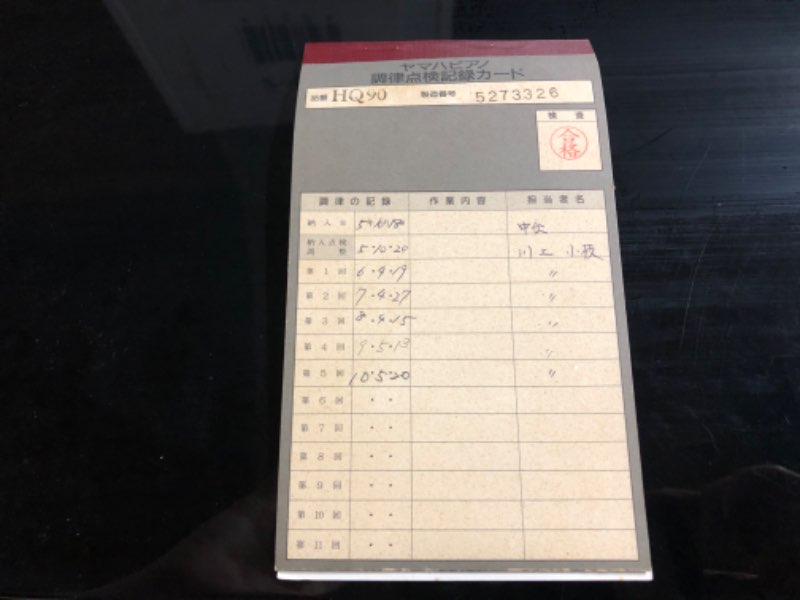 ヤマハピアノ
調律点検記録カード
品番 HQ90 製造番号 5273326
検査
合格
調律の記録 作業内容 担当者名
納入日
納入点検調整 5・10・20 川上
第1回 6・4・19 〃
第2回 7・4・27 〃
第3回 8・4・15 〃
第4回 9・5・13 〃
第5回 10・5・20 〃
第6回 ・ ・
第7回 ・ ・
第8回 ・ ・
第9回 ・ ・
第10回 ・ ・
第11回 ・ ・